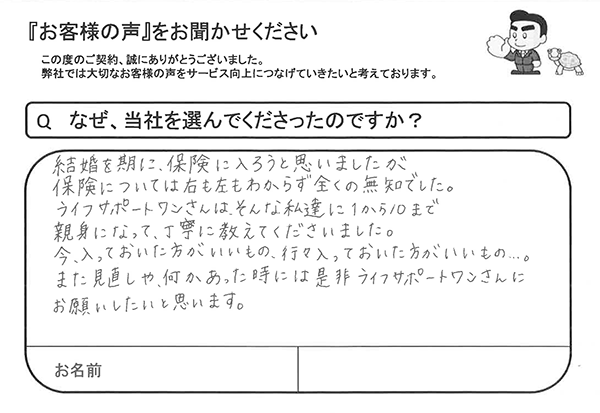 『お客様の声』をお聞かせください
この度のご契約、誠にありがとうございました。
弊社では大切なお客様の声をサービス向上につなげていきたいと考えております。
Q なぜ、当社を選んでくださったのですか？
結婚を期に、保険に入ろうと思いましたが
保険については右も左もわからず全くの無知でした。
ライフサポートワンさんは、そんな私達に1から10まで
親身になって、丁寧に教えてくださいました。
今、入っておいた方がいいもの、行々入っておいた方がいいもの…。
また見直しや、何かあった時には是非ライフサポートワンさんに
お願いしたいと思います。
お名前